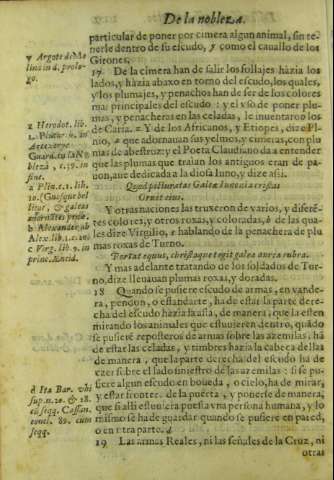 De la nobleza.
particular de poner por cimera algun animal, sin te-
nerle dentro de su escudo, y como el cauallo de los
Girones.
17 De la cimera han de salir los follajes hàzia los
lados, y hàzia abaxo en torno del escudo, los quales,
y los plumajes, y penachos han de ser de los colores
mas principales del escudo: y el vso de poner plu-
mas, y penacheras en las celadas, le inuentaron los
de Caria. Y de los Africanos, y Etiopes, dize Pli-
nio, que adornauan sus yelmos, y cimeras, con plu-
mas de abestruz; y el Poeta Claudiano da a entender
que las plumas que traìan los antiguos eran de pa-
uon, aue dedicada a la diosa Iuno, y dize assi.
Quod picturatas Galeæ Iunonia cristas
Ornet auis.
Y otras naciones las truxeron de varios, y diferẽ-
tes colores, y otros roxas, y coloradas, de las qua-
les dize Virgilio, hablando de la penachera de plu
mas roxas de Turno.
Portat equus, christaque tegit galea aurea rubra.
Y mas adelante tratando de los soldados de Tur-
no, dize lleuauan plumas roxas, y doradas.
18 Quando se pusiere escudo de armas, en vande-
ra, pendon, o estandarte, ha de estar la parte dere-
cha del escudo hàzia la asta, de manera, que la estẽn
mirando los animales que estuuieren dentro, quãdo
se pusierẽ reposteros de armas sobre las azemilas, hã
de estar las celadas, y timbres hàzia la cabeça dellas
de manera, que la parte derecha del escudo ha de
caer sobre el lado siniestro de las azemilas: si se pu-
siere algun escudo en boueda, o cielo, ha de mirar,
y estar frontero de la puerta, y ponerse de manera,
que si alli estuuiera puesta vna persona humana, y lo
mismo se ha de guardar quando se pusiere en pared,
o en otra parte.
19 Las armas Reales, ni las señales de la Cruz, ni
otras
y Argote de Mo
lina in d. prolo-
go.
z Herodot. lib.
1. Plutar. in
Artexerxe.
Guard. tu la No
bleza, c.39. in
fine.
a Plin. c.1. lib.
10.
b Alexander ab
Alex. lib.1. c.20.
c Virg. lib. 9. in
princ. Æneid.
d Ita Bar. vbi
sup. n.20. & 18.
cũ seqq. Cassan.
concl. 89. cum
seqq.